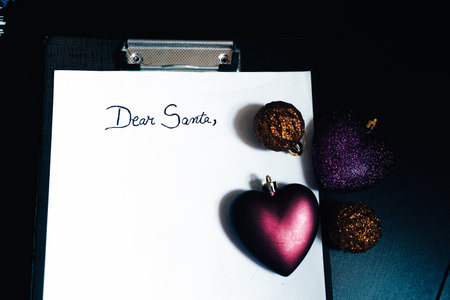 Dear Santa,